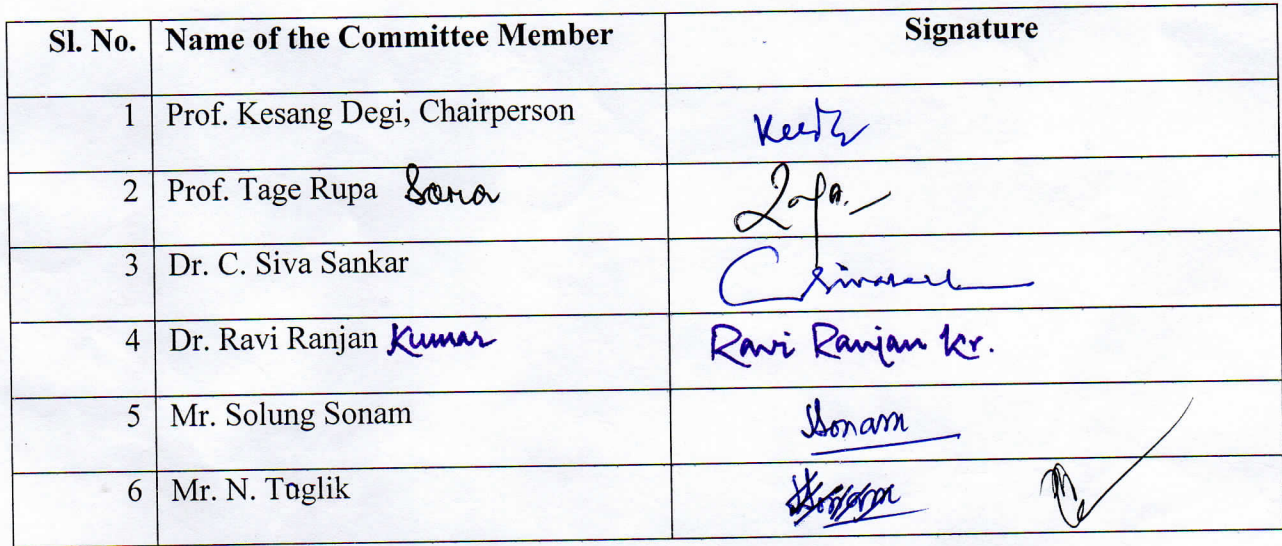 Sl. No. Name of the Committee Member Signature
1 Prof. Kesang Degi, Chairperson
2 Prof. Tage Rupa Sora
3 Dr. C. Siva Sankar
4 Dr. Ravi Ranjan Kumar Ravi Ranjan Kr.
5 Mr. Solung Sonam Sonam
6 Mr. N. Tuglik